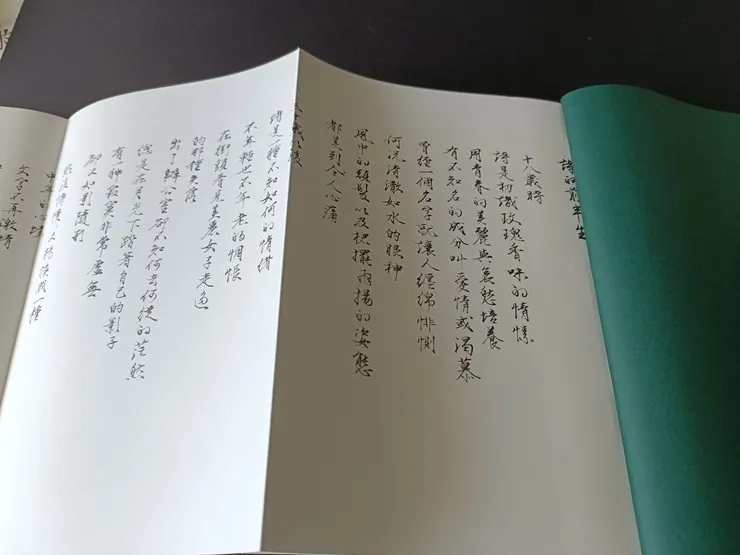 詩的前半生
十八歲時
詩是初識玫瑰香味的情愫
用青春的美麗與哀愁培養
有不知名的成分叫愛情或渴慕
一個名字就讓人纏綿悱惻
何況清澈如水的眼神
風中的頭髮以及裙擺飛揚的姿態
都美到令人心痛
三十歲以後
詩是一種不知如何的情緒
不年輕也不年老的惆悵
在街頭看見美麗女子走過
的那種失落
出了辦公室卻不知何去何從的茫然
總是在月光下踏著自己的影子
有一种寂寞非常虛無
卻又如影隨形
一種
中年的心境
文字不再激情